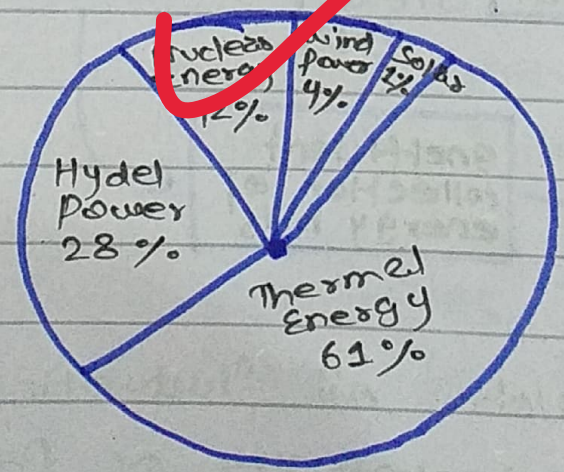 Nuclear
Energy
12%
Wind
Power
4%
Solar
2%
Hydel
Power
28%
Thermal
Energy
61%